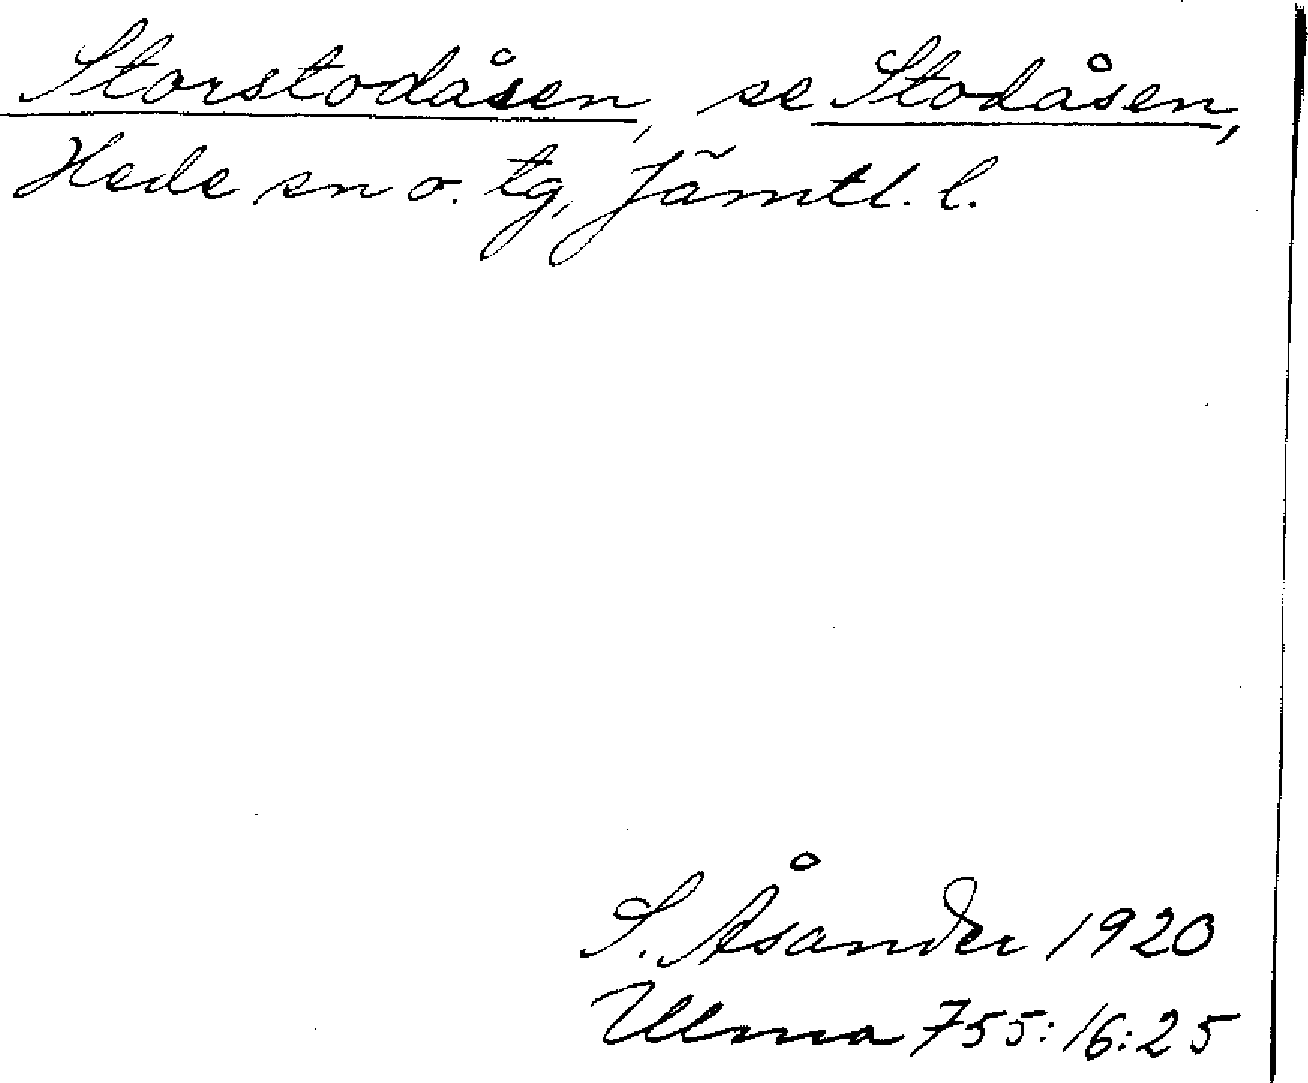 Storstodåsen, se Stodåsen,
Hede sn o. tg, Jämtl. l.
S. Åsander 1920
Ulma 755:16:25